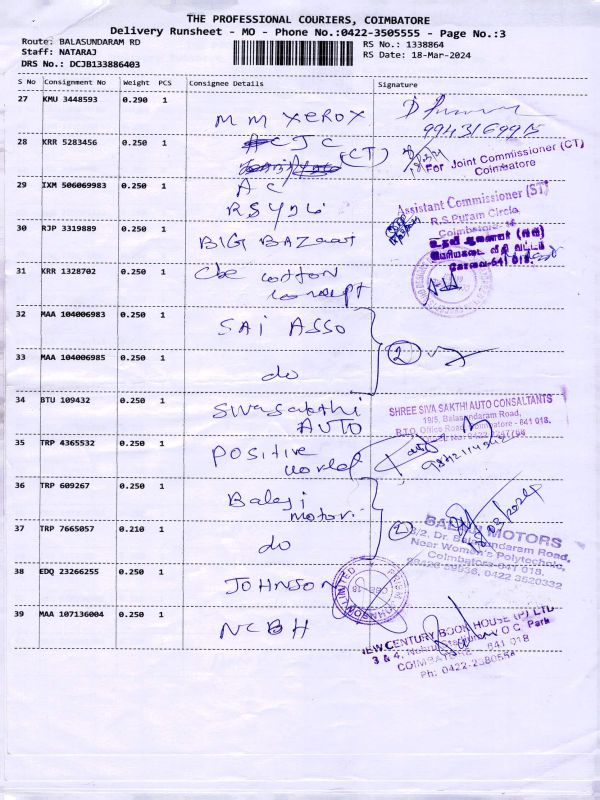 THE PROFESSIONAL COURIERS, COIMBATORE
Delivery Runsheet - MO - Phone No.:0422-3505555 - Page No.:3
Route: BALASUNDARAM RD
Staff: NATARAJ
DRS No.: DCJB133886403
RS No.: 1338864
RS Date: 18-Mar-2024
S No Consignment No Weight PCS Consignee Details Signature
27 KMU 3448593 0.290 1 MM XEROX
9943169915
28 KRR 5283456 0.250 1 CJC
(CT)
For Joint Commissioner (CT)
Coimbatore
29 IXM 506069983 0.250 1 AC
Assistant Commissioner (ST)
R.S.Puram Circle
Coimbatore
30 RJP 3319889 0.250 1 BIG BAZaar
உதவி ஆணையர்
பெரியகடை வீதி வட்டம்
கோவை-641 018.
31 KRR 1328702 0.250 1 Cbe cotton
concept
32 MAA 104006983 0.250 1 SAI ASSO
2
33 MAA 104006985 0.250 1 do
34 BTU 109432 0.250 1 Sivasakthi
AUTO
SHREE SIVA SAKTHI AUTO CONSALTANTS
19/5, Balasundaram Road,
R.T.O. Office Road, Coimbatore - 641 018.
35 TRP 4365532 0.250 1 POSITIVE
world
36 TRP 609267 0.250 1 Balaji
motor
2
BALAJI MOTORS
Dr. Balasundaram Road,
Near Women's Polytechnic,
Coimbatore-641 018.
0422 3520332
37 TRP 7665057 0.210 1 do
38 EDQ 23266255 0.250 1 JOHNSON
39 MAA 107136004 0.250 1 NCBH
NEW CENTURY BOOK HOUSE (P) LTD
COIMBATORE - 641 018